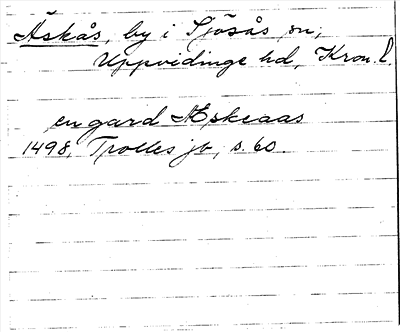 Äskås, by i Sjösås sn,
Uppvidinge hd, Kron. l.
en gard Æskeaas
1498, Trolles jb, s. 60.